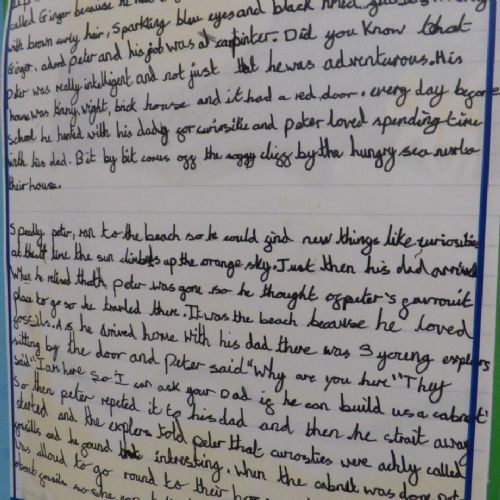 called Ginger because he
with brown curly hair, Sparkling bleu eyes and black
Ginger. adord peter and his job was a carpinter. Did you Know that
Peter was really intelligent and not just that he was adventurous. His
home was tinny, wight, bick house and it had a red door. every day before
School he hunted with his dady for curiousitie and peter loved spending time
with his dad. Bit by bit comes off the soggy cliff by the hungry sea next to
their house.
Speedly peter, ran to the beach so he could find new things like curiosities
at thatt time the sun climbets up the orange sky. Just then his dad arrived
When he relised thath peter was gone so he thought of peter's favrouit
place to go so he traveled there. It was the beach because he loved
fossills. As he arived home with his dad there was 3 young explors
sitting by the door and peter said "Why are you here" "They
said "I am here So I can ask your Dad if he can build us a cabnet"
So then peter repeted it to his dad and then he strait away
started and the explors told peter that curosties were achly called
fossills and he found that interesting. When the cabnet was done
was aloud to go round to their